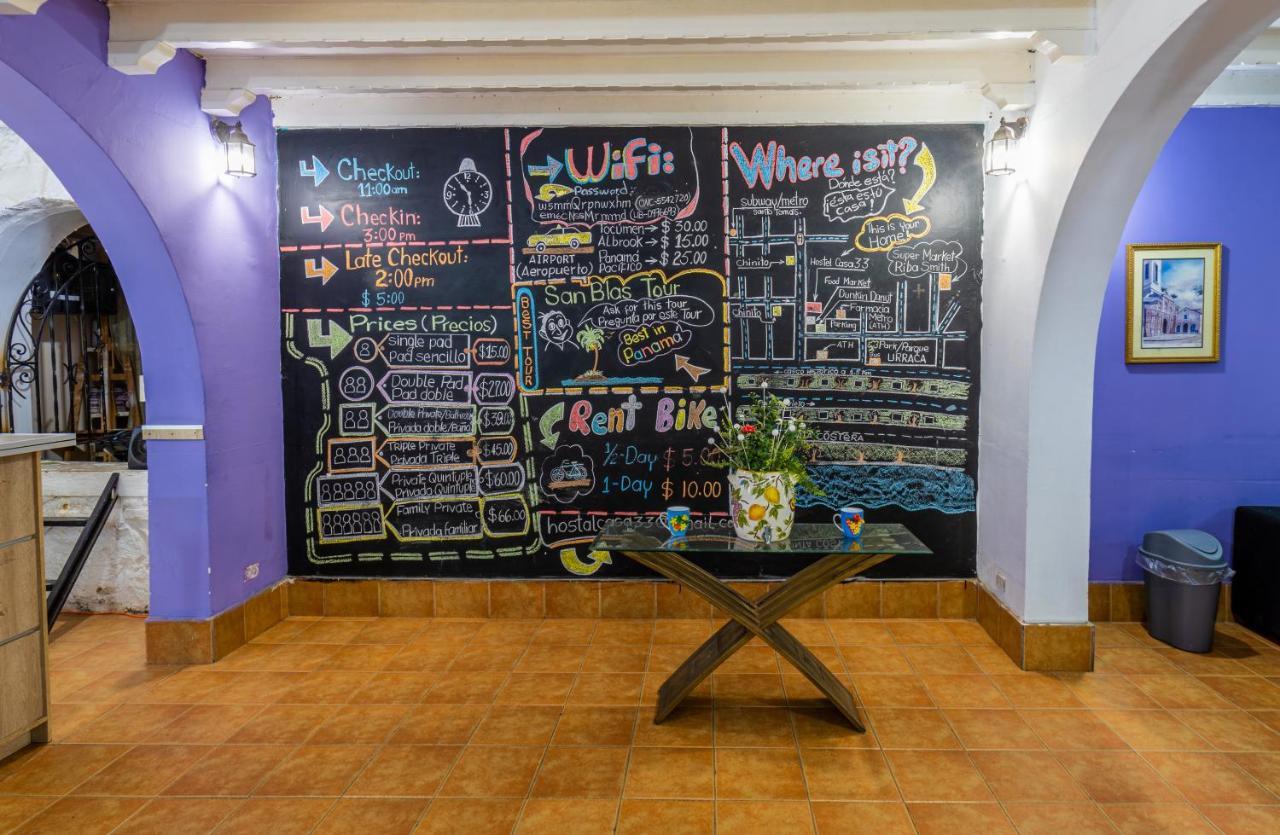 Checkout:
11:00am
Checkin:
3:00 pm
Late Checkout:
2:00 pm
$ 5:00
Prices (Precios)
single pad
Pad sencillo
$15.00
Double Pad
Pad doble
$27.00
Double Private/Bathroom
Privada doble/Baño
$39.00
Triple Private
Privada Triple
$45.00
Private Quintuple
Privada Quintuple
$60.00
Family Private
Privada familiar
$66.00
Wifi:
Password:
AIRPORT
(Aeropuerto)
Tocumen → $ 30.00
Albrook → $ 15.00
Panamá
Pacífico → $ 25.00
BEST TOUR
San Blas Tour
Ask for this tour
Pregunta por este Tour
Best in
Panama
Rent Bike
1/2-Day $ 5.00
1-Day $ 10.00
Where is it?
Dónde está?
¡ésta es tú
Casa!
This is your
Home!
subway/metro
Santo Tomás
Chinito
Hostel Casa33
Super Market
Riba Smith
Food Market
Dunkin Donut
Farmacia
Metro
(ATH)
Chinito
Parking
ATH
Park/Parque
URRACA
COSTERA